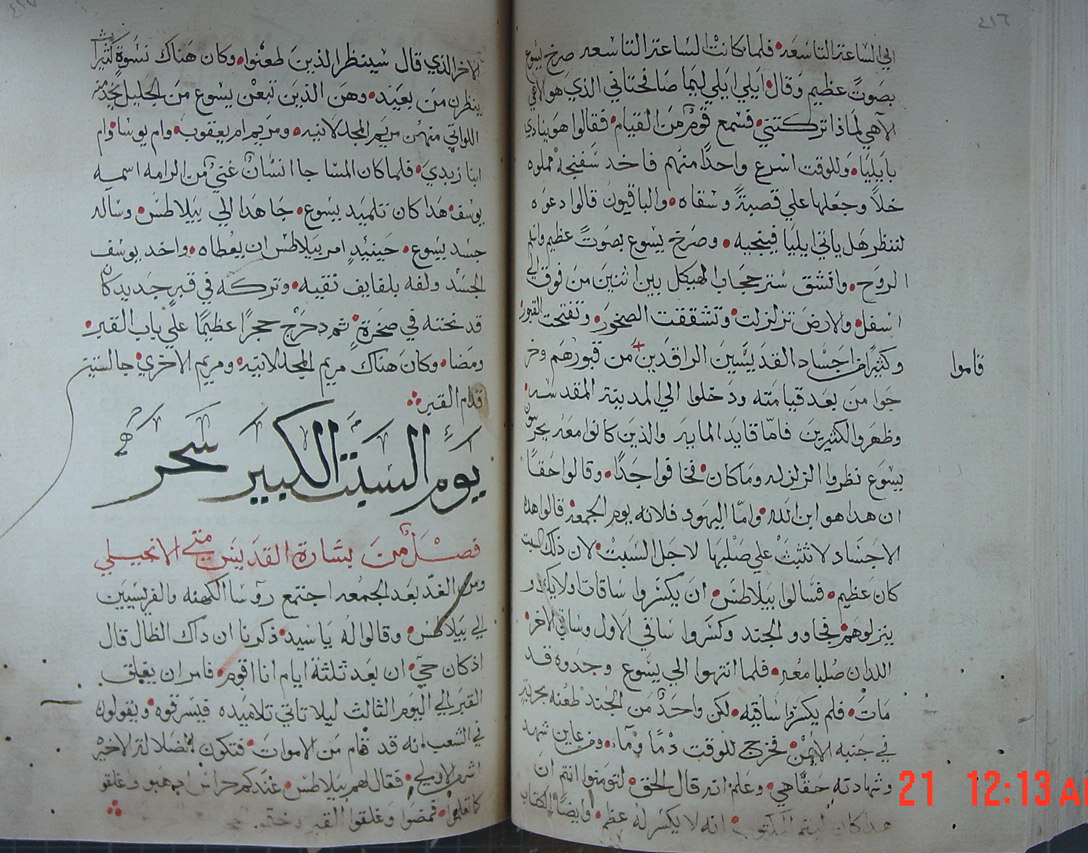 ٤١٦
الي الساعة التاسعه فلما كانت الساعة التاسعه صرخ يسوع
بصوت عظيم وقال ايلي ايلي ليما صافختاني الذي هو الاهي
الاهي لماذا تركتني فسمع قوم من القيام فقالوا هوينادي
بايليا وللوقت اسرع واحدا منهم فاخد سفنجه مملوه
خلا وجعلها علي قصبة وسقاه والباقيون قالوا دعوه
لننظر هل ياتي ايليا فينجيه وصرخ يسوع بصوت عظيم واسلم
الروح وانشق ستر حجاب الهيكل بين اثنين من فوق الي
اسفل والارض تزلزلت وتشققت الصخور وتفتحت القبور
وكثيرا من اجساد القديسين الراقدين من قبورهم وخر
قاموا
جوا من بعد قيامته ودخلوا الي المدينة المقدسه
وظهروا لكثيرين فاما قايد المايه والذين كانوا معه يحرسون
يسوع نظروا الزلزله وما كان فخافوا جدا وقالوا حقا
ان هدا هو ابن الله واما اليهود فلانه يوم الجمعه قالوا هذه
الاجساد لا تثبت علي صلبها لاجل السبت لان ذلك السبت
كان عظيم فسالوا بيلاطس ان يكسروا ساقات
ينزلوهم فجاوو الجند وكسروا ساقي الاول وساقي الاخر
اللدان صلبا معه فلما انتهوا الي يسوع وجدوه قد
مات فلم يكسروا ساقيه لكن واحد من الجند طعنه بحربه
في جنبه الايمن فخرج للوقت دما وماء ومن عاين شهد
وشهادته حقا هي وعلم انه قال الحق لتومنوا انتم ان
هدا كان ليتم المكتوب انه لا يكسر له عظم وايضا الكتاب
الاخر الذي قال سينظر الذين طعنوا وكان هناك نسوة كثيرا
ينظرن من بعيد وهن الذين تبعن يسوع من الجليل
اللواتي منهن مريم المجدلانيه ومريم ام يعقوب وام يوسا وام
ابنا زبدي فلما كان المسا جا انسان غني من الرامه اسمه
يوسف هدا كان تلميد يسوع جا هدا الي بيلاطس وساله
جسد يسوع حينيد امر بيلاطس ان يعطاه واخد يوسف
الجسد ولفه بلفايف نقيه وتركه في قبر جديد كان
قد نحته في صخرة ثم دحرج حجرا عظيما علي باب القبر
ومضا وكان هناك مريم المجدلانيه ومريم الاخري جالستين
قدام القبر
يوم السبت الكبير سحر
فصل من بشارة القديس متي الانجيلي
ومن الغد بعد الجمعه اجتمع روسا الكهنه والفريسيين
الي بيلاطس وقالوا له يا سيد ذكرنا ان داك الظال قال
اذ كان حي ان بعد ثلثة ايام انا اقوم فامر ان يغلق
القبر الي اليوم الثالث ليلا تاتي تلاميده فيسرقوه ويقولون
في الشعب انه قد قام من الاموات فتكون الضلالة الاخيره
اشر من الاولي فقال لهم بيلاطس عندكم حراس ادهبوا وغلقوا
كما تعلموا فمضوا وغلقوا القبر
21 12:13 AM